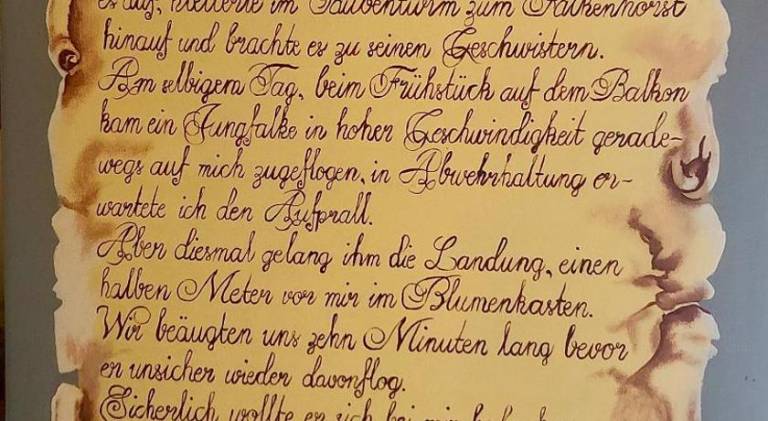 es auf, kletterte im Taubenturm zum Falkenhorst
hinauf und brachte es zu seinen Geschwistern.
Am selbigem Tag, beim Frühstück auf dem Balkon
kam ein Jungfalke in hoher Geschwindigkeit gerade-
wegs auf mich zugeflogen, in Abwehrhaltung er-
wartete ich den Aufprall.
Aber diesmal gelang ihm die Landung, einen
halben Meter vor mir im Blumenkasten.
Wir beäugten uns zehn Minuten lang bevor
er unsicher wieder davonflog.
Sicherlich wollte er sich bei mir